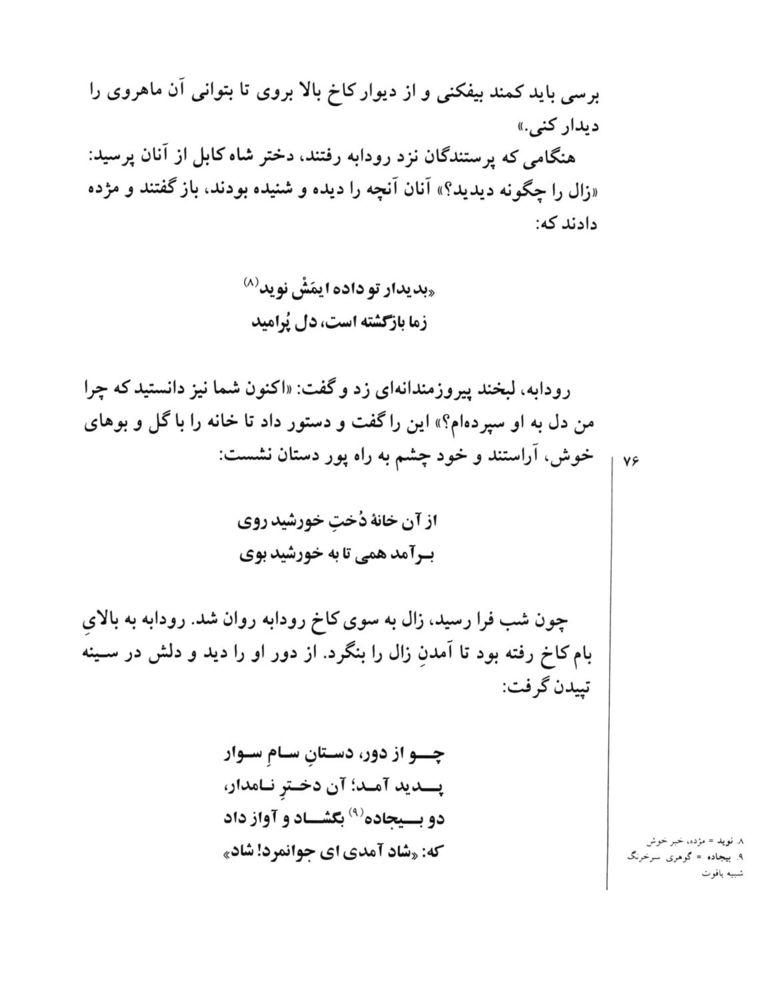 برسی باید کمند بیفکنی و از دیوار کاخ بالا بروی تا بتوانی آن ماهروی را
دیدار کنی.»
هنگامی که پرستندگان نزد رودابه رفتند، دختر شاه کابل از آنان پرسید:
«زال را چگونه دیدید؟» آنان آنچه را دیده و شنیده بودند، باز گفتند و مژده
دادند که:
«بدیدار تو داده ایمَشْ نوید(۸)
زما بازگشته است، دل پُرامید
رودابه، لبخند پیروزمندانه‌ای زد و گفت: «اکنون شما نیز دانستید که چرا
من دل به او سپرده‌ام؟» این را گفت و دستور داد تا خانه را با گل و بوهای
خوش، آراستند و خود چشم به راه پور دستان نشست:
۷۶
از آن خانهٔ دُختِ خورشید روی
بـرآمد همی تا به خورشید بوی
چون شب فرا رسید، زال به سوی کاخ رودابه روان شد. رودابه به بالایِ
بام کاخ رفته بود تا آمدنِ زال را بنگرد. از دور او را دید و دلش در سـینه
تپیدن گرفت:
چـــو از دور، دسـتانِ سـامِ سـوار
پـــدید آمـد؛ آن دخـترِ نـامدار،
دو بـــیجاده(۹) بگشـــاد و آواز داد
که: «شاد آمدی ای جوانمرد! شاد»
۸. نوید = مژده، خبر خوش
۹. بیجاده = گوهری سرخرنگ
شبیه یاقوت